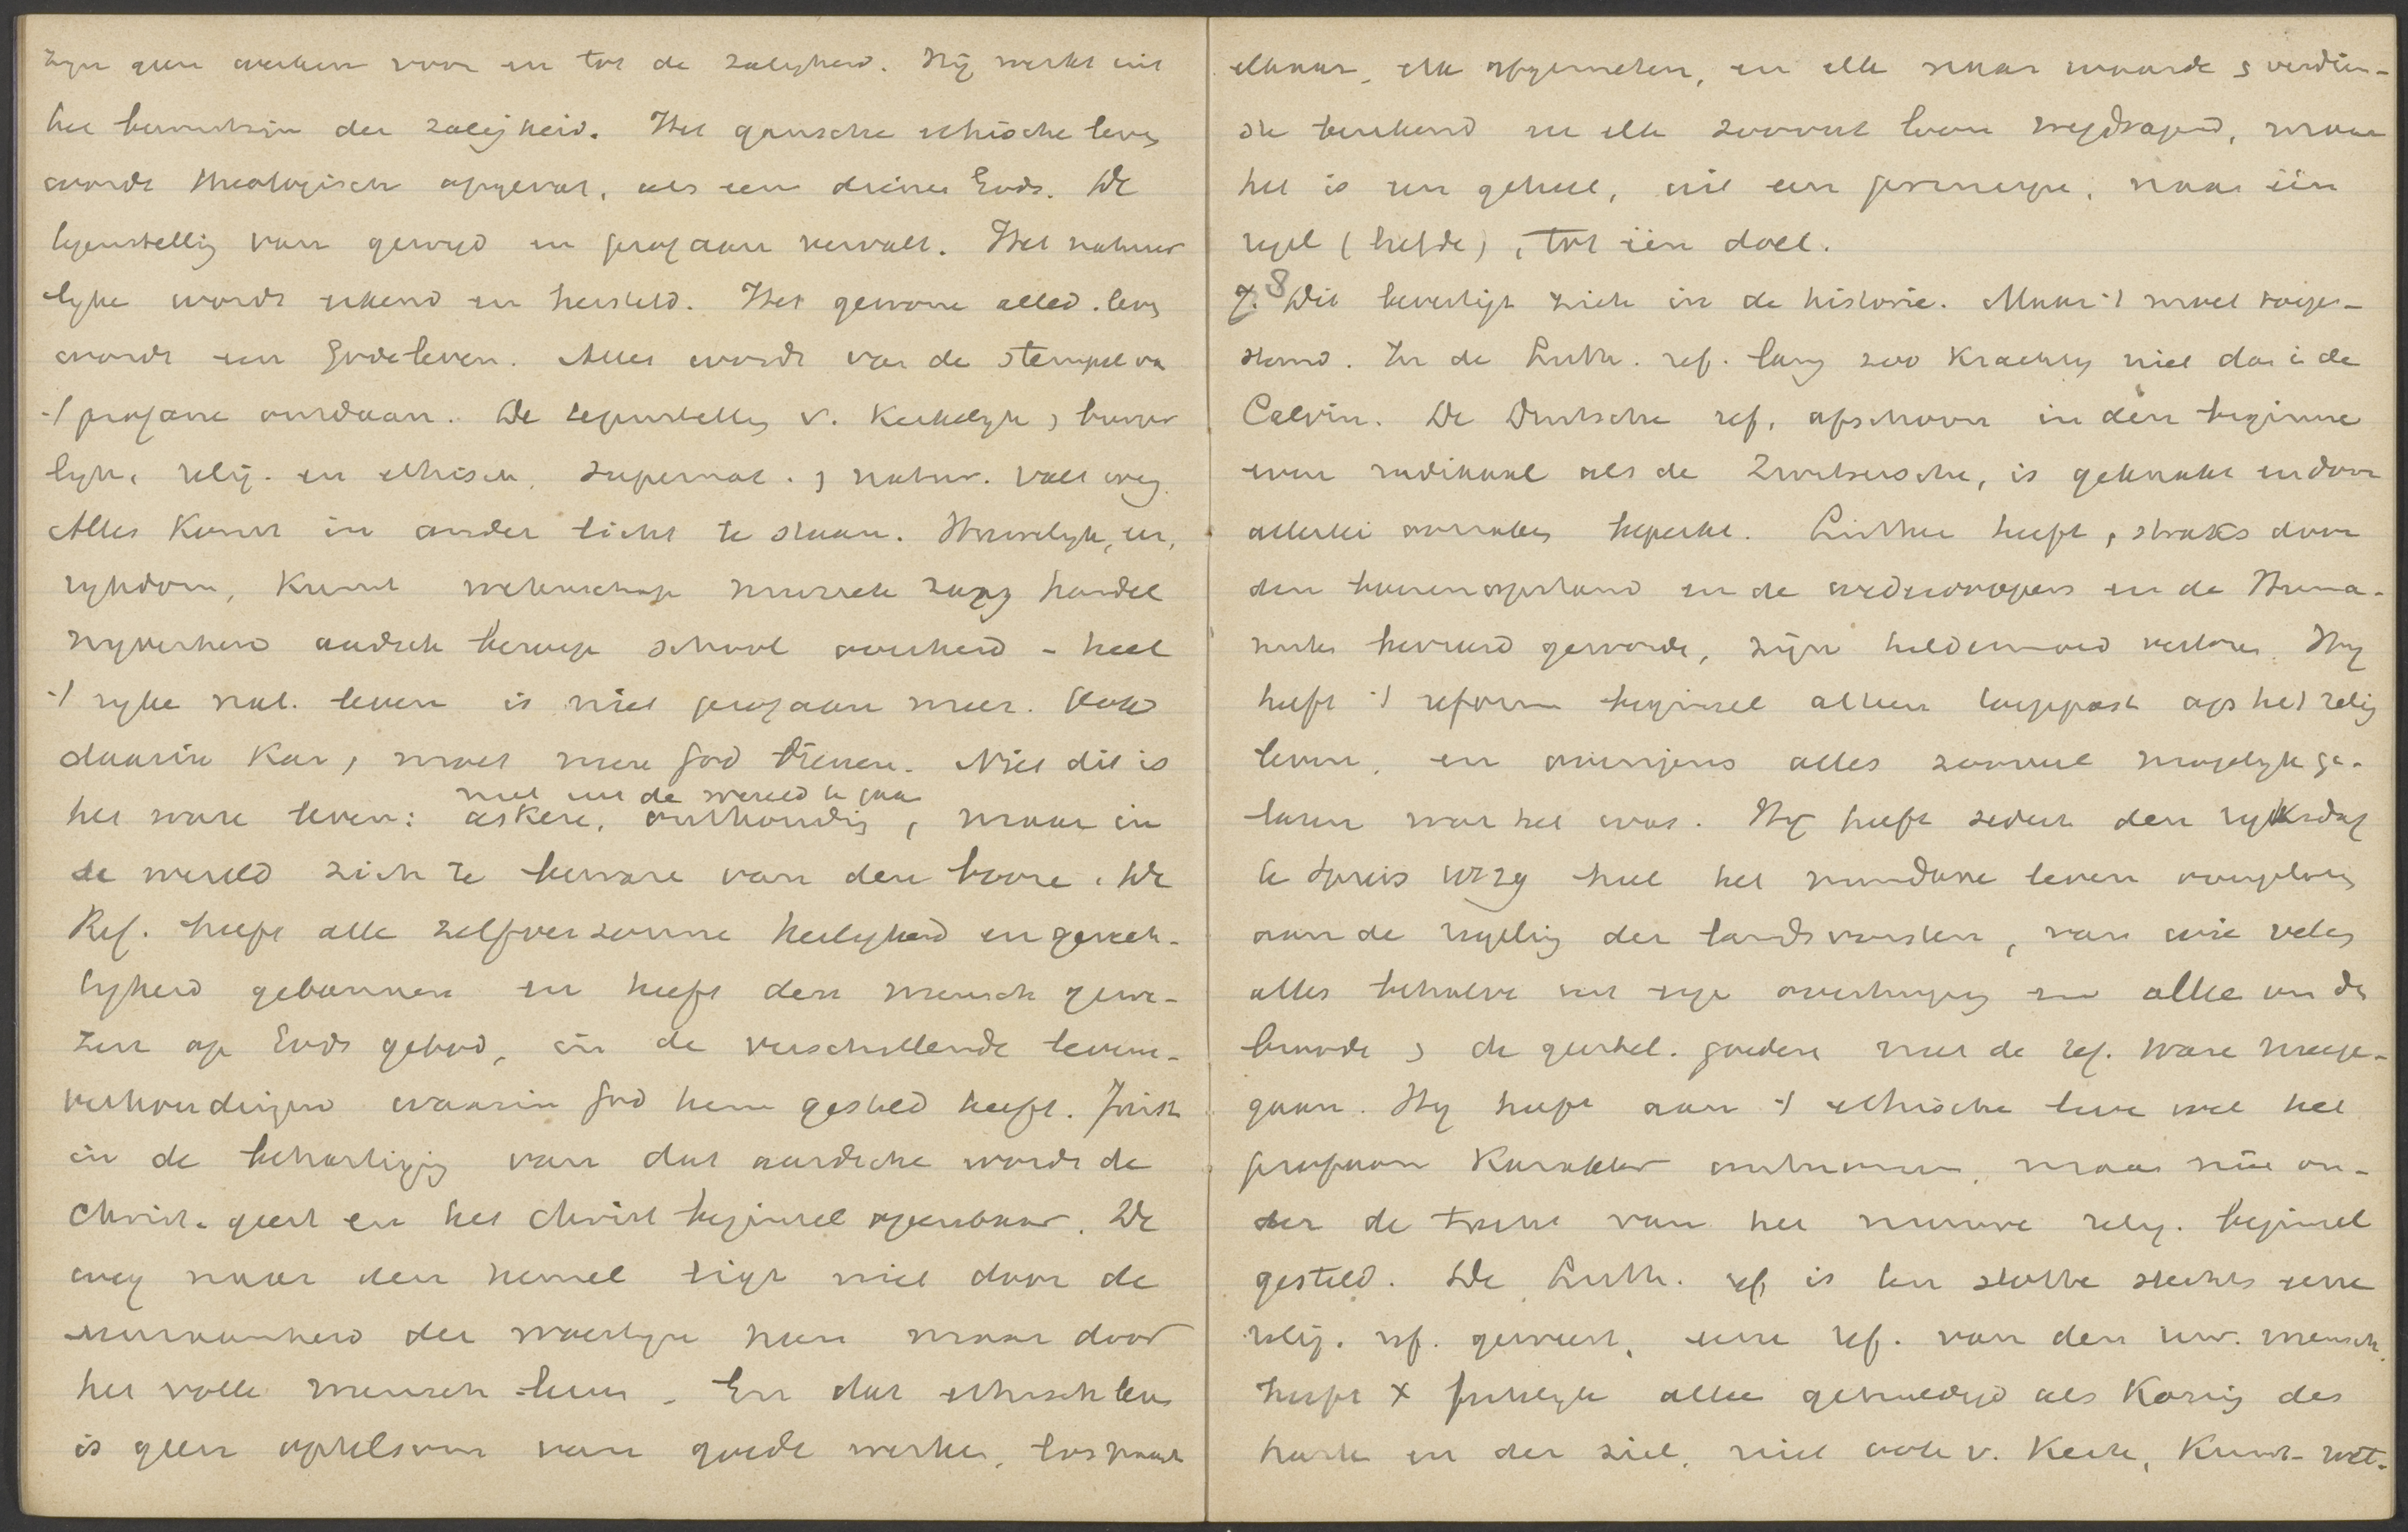 zijn geen werken voor en tot de zaligheid. Hij werkt uit
het bewustzijn der zaligheid. Het gansche ethische leven
wordt theologisch opgevat, als een dienen Gods. De
tegenstelling van gewijd en profaan vervalt. Het natuur
lyke wordt erkend en hersteld. Het gewone alled. leven
wordt een Godeleven. Alles wordt van de stempel van
't profane ontdaan. De tegenstelling v. Kerkelyk & burger
lyk, relig. en ethisch, supernat. & natuur. valt weg.
Alles komt in ander licht te staan. Huwelyk, eer,
rykdom, kunst wetenschap muziek zang handel
nyverheid aardsch beroep school overheid - heel
't ryke nat. leven is niet profaan meer. Ook
daarin kan, moet men God dienen. Niet dit is
niet uit de wereld te gaan
het ware leven: askese, onthouding, maar in
de wereld zich te beware van den booze. De
Ref. heeft alle zelfverzonne heiligheid en gerech-
tigheid gebannen en heeft den mensch gewe-
zen op Gods gebod, in de verschillende levens-
verhoudingen waarin God hem gesteld heeft. Juist
in de behartiging van dat aardsche wordt de
Christ. geest en het Christ beginsel openbaar. De
weg naar den hemel ligt niet door de
eenzaamheid der woestyn heen maar door
het volle menschenleven. En dat ethisch leven
is geen optelsom van goede werken, los naast
elkaar, elk afgemeten, en elk naar waarde & verdien-
ste berekend en elk zooveel loon wegdragend, maar
het is een geheel, uit een principe, naar één
regel (liefde), tot één doel.
8. Dit bevestigt zich in de historie. Maar 't moet toege-
stemd. In de Luth. ref. lang zoo krachtig niet dan in de
Calvin. De Duitsche ref. ofschoon in den beginne
even radikaal als de Zwitsersche, is geknakt en door
allerlei oorzaken beperkt. Luther heeft, straks door
den boerenopstand en de wederdoopers en de Huma-
nisten bevreesd geworden, zijn heldenmoed verloren. Hij
heeft 't reform beginsel alleen toegepast op het relig
leven, en overigens alles zooveel mogelyk ge-
laten wat het was. Hij heeft sedert den ryksdag
te Spiers 1529 heel het mundane leven overgelaten
aan de regeling der landsvorsten, van wie velen
alles behalve uit eigen overtuiging en alleen om de
brood & de geestel. goederen met de ref. ware meege-
gaan. Hij heeft aan 't ethische leven wel het
profaan karakter ontnomen, maar niet on-
der de tucht van het nieuwe relig. beginsel
gesteld. De Luth. ref is ten slotte slechts eene
relig. ref. geweest, eene ref. van den inw. mensch.
heeft X feitelyk alleen gehuldigd als Koning des
harten en der ziel, niet ook v. Kerk, Kunst- wet-